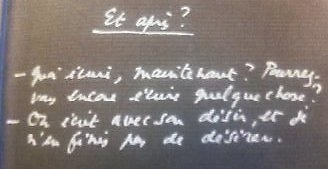 Et après ?
- Qu'écrire, maintenant ? Pourrez-
vous encore écrire quelque chose ?
- On écrit avec son désir, et je
n'en finis pas de désirer.